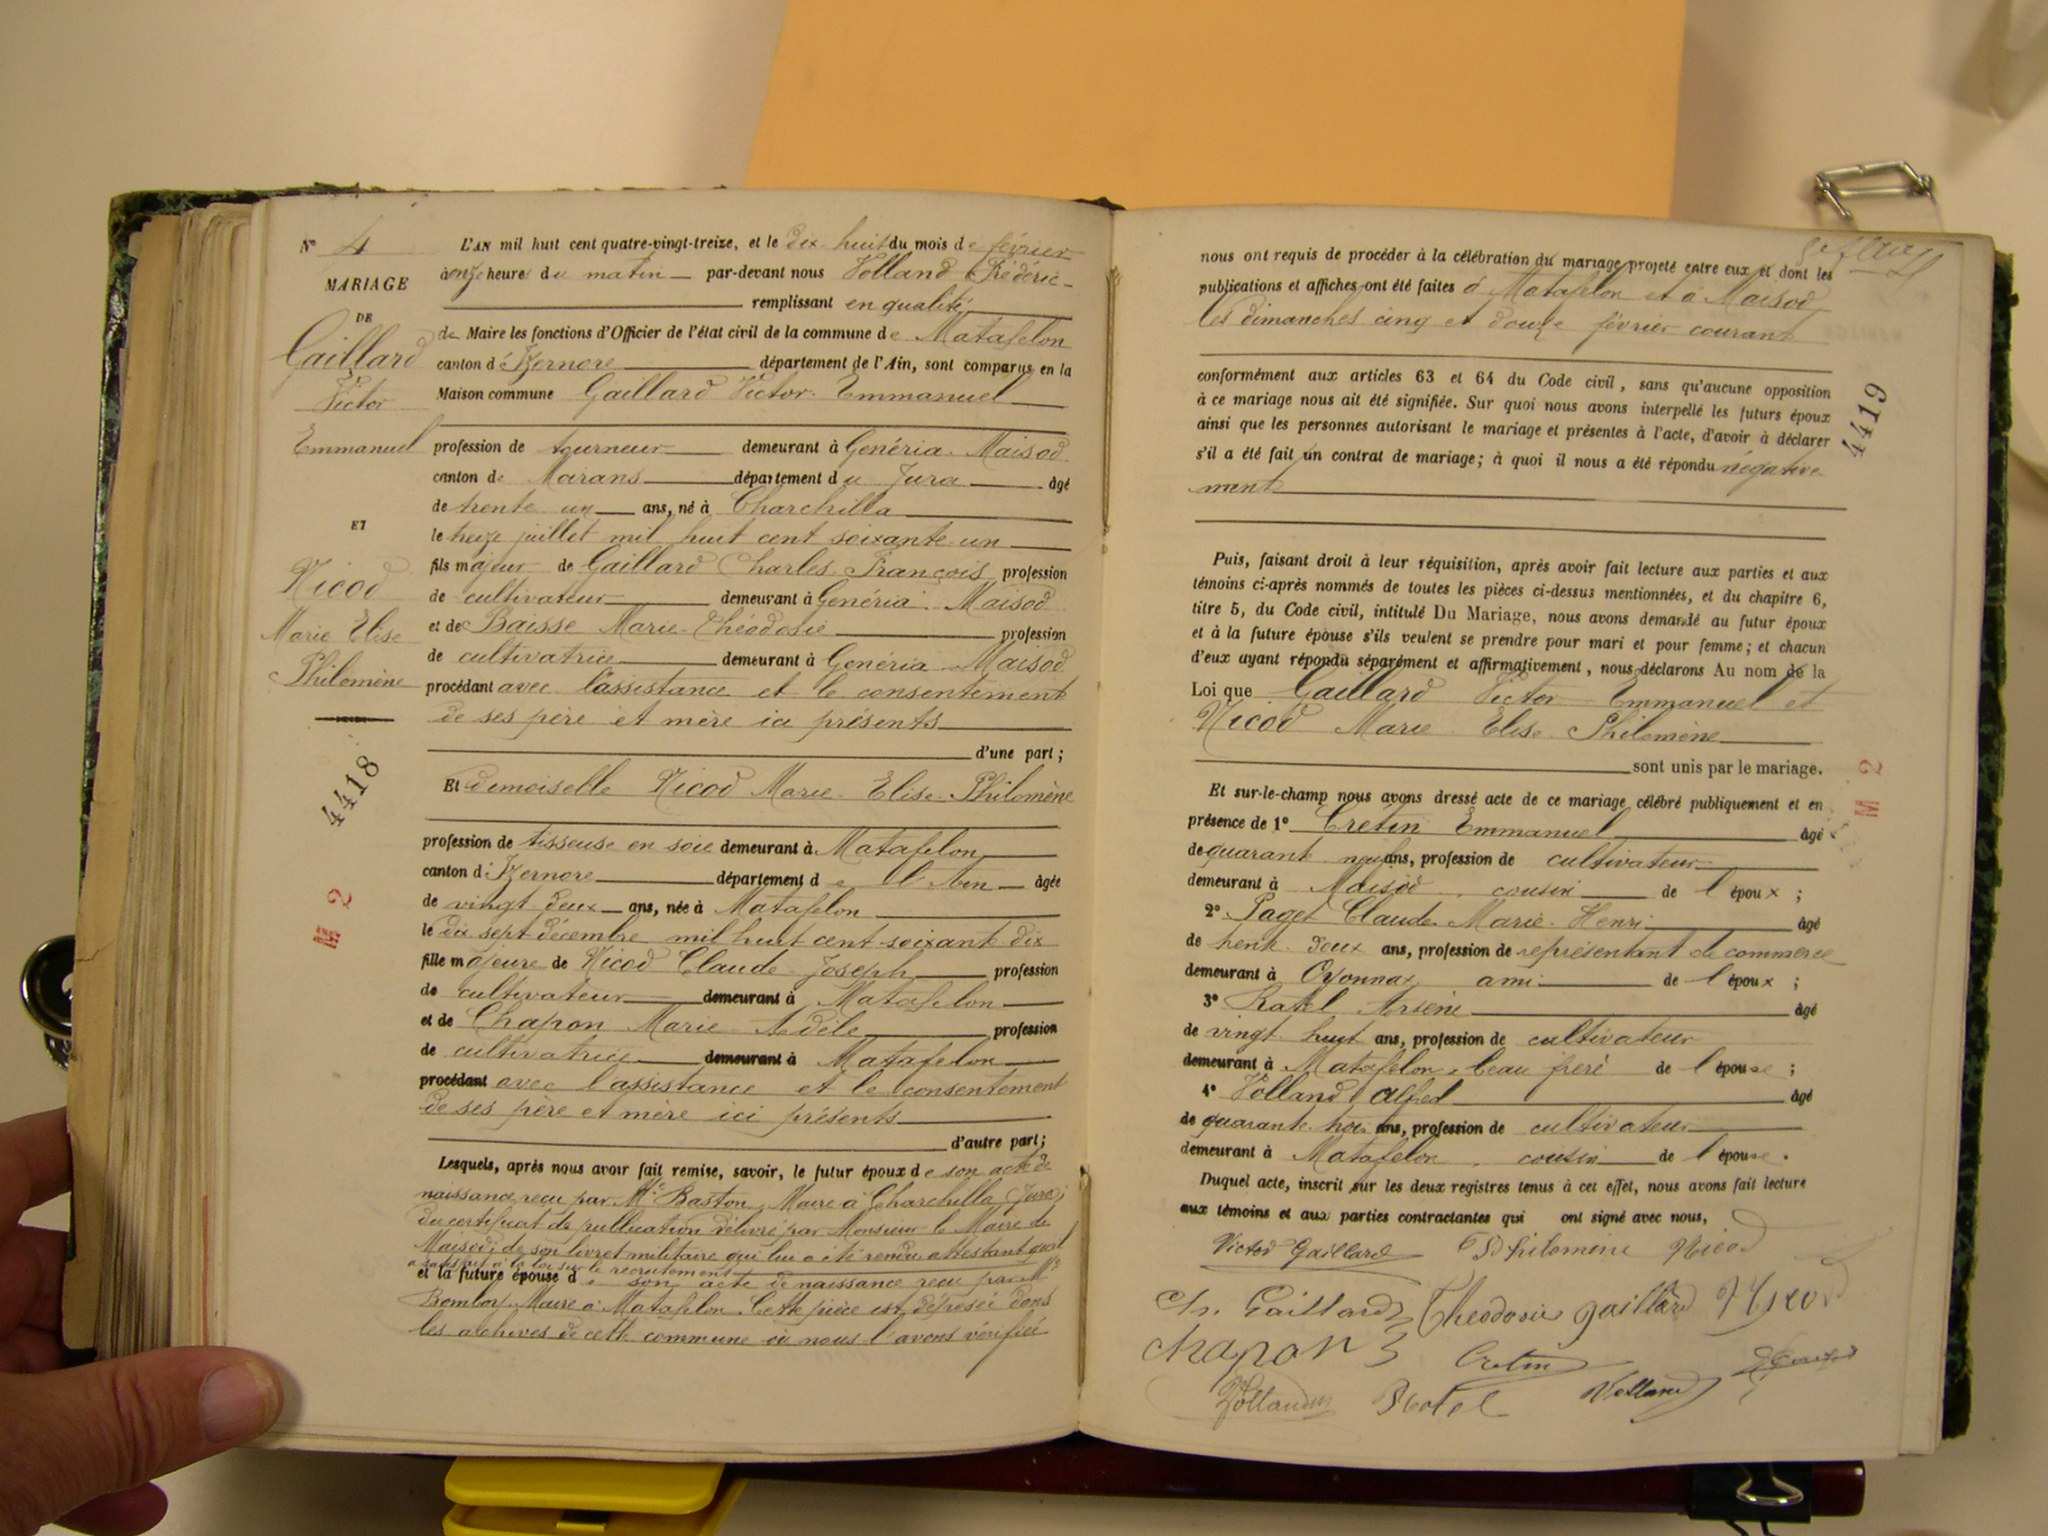 N° 4
MARIAGE
DE
Gaillard
Victor
Emmanuel
ET
Nicod
Marie Elise
Philomène
4418
M 2
L'AN mil huit cent quatre-vingt-treize, et le dix huit du mois de février
à onze heures du matin par-devant nous Volland Frédéric
remplissant en qualité
de Maire les fonctions d'Officier de l'état civil de la commune de Matafelon
canton d'Izernore département de l'Ain, sont comparus en la
Maison commune Gaillard Victor Emmanuel
profession de tourneur demeurant à Genéria Maisod
canton de Moirans département du Jura âgé
de trente un ans, né à Charchilla
le treize juillet mil huit cent soixante un
fils majeur de Gaillard Charles François profession
de cultivateur demeurant à Genéria Maisod
et de Baisse Marie Théodosie profession
de cultivatrice demeurant à Genéria Maisod
procédant avec l'assistance et le consentement
de ses père et mère ici présents
d'une part ;
Et demoiselle Nicod Marie Elise Philomène
profession de tisseuse en soie demeurant à Matafelon
canton d'Izernore département de l'Ain âgée
de vingt deux ans, née à Matafelon
le dix sept décembre mil huit cent soixante dix
fille majeure de Nicod Claude Joseph profession
de cultivateur demeurant à Matafelon
et de Chapon Marie Adèle profession
de cultivatrice demeurant à Matafelon
procédant avec l'assistance et le consentement
de ses père et mère ici présents
d'autre part ;
Lesquels, après nous avoir fait remise, savoir, le futur époux de son acte de
naissance reçu par Mr Baston, Maire à Charchilla (Jura)
du certificat de publication délivré par Monsieur le Maire de
Maisod ; de son livret militaire qui lui a été rendu attestant qu'il
a satisfait à la loi sur le recrutement
et la future épouse de son acte de naissance reçu par Mr
Bomboy Maire à Matafelon. Cette pièce est déposée dans
les archives de cette commune où nous l'avons vérifiée
nous ont requis de procéder à la célébration du mariage projeté entre eux et dont les
publications et affiches ont été faites à Matafelon et à Maisod
les dimanches cinq et douze février courant
conformément aux articles 63 et 64 du Code civil, sans qu'aucune opposition
à ce mariage nous ait été signifiée. Sur quoi nous avons interpellé les futurs époux
ainsi que les personnes autorisant le mariage et présentes à l'acte, d'avoir à déclarer
s'il a été fait un contrat de mariage ; à quoi il nous a été répondu négative
ment
Puis, faisant droit à leur réquisition, après avoir fait lecture aux parties et aux
témoins ci-après nommés de toutes les pièces ci-dessus mentionnées, et du chapitre 6,
titre 5, du Code civil, intitulé Du Mariage, nous avons demandé au futur époux
et à la future épouse s'ils veulent se prendre pour mari et pour femme ; et chacun
d'eux ayant répondu séparément et affirmativement, nous déclarons Au nom de la
Loi que Gaillard Victor Emmanuel et
Nicod Marie Elise Philomène
sont unis par le mariage.
Et sur-le-champ nous avons dressé acte de ce mariage célébré publiquement et en
présence de 1° Cretin Emmanuel âgé
de quarante neuf ans, profession de cultivateur
demeurant à Maisod cousin de l'époux ;
2° Paget Claude Marie Henri âgé
de trente deux ans, profession de représentant de commerce
demeurant à Oyonnax ami de l'époux ;
3° Ratel Arsène âgé
de vingt huit ans, profession de cultivateur
demeurant à Matafelon beau frère de l'épouse ;
4° Volland Alfred âgé
de quarante trois ans, profession de cultivateur
demeurant à Matafelon cousin de l'épouse.
Duquel acte, inscrit sur les deux registres tenus à cet effet, nous avons fait lecture
aux témoins et aux parties contractantes qui ont signé avec nous,
Victor Gaillard Philomène Nicod
Ch. Gaillard Théodosie gaillard Nicod
chapon Cretin
Vollandm Ratel Volland
4419
M 2